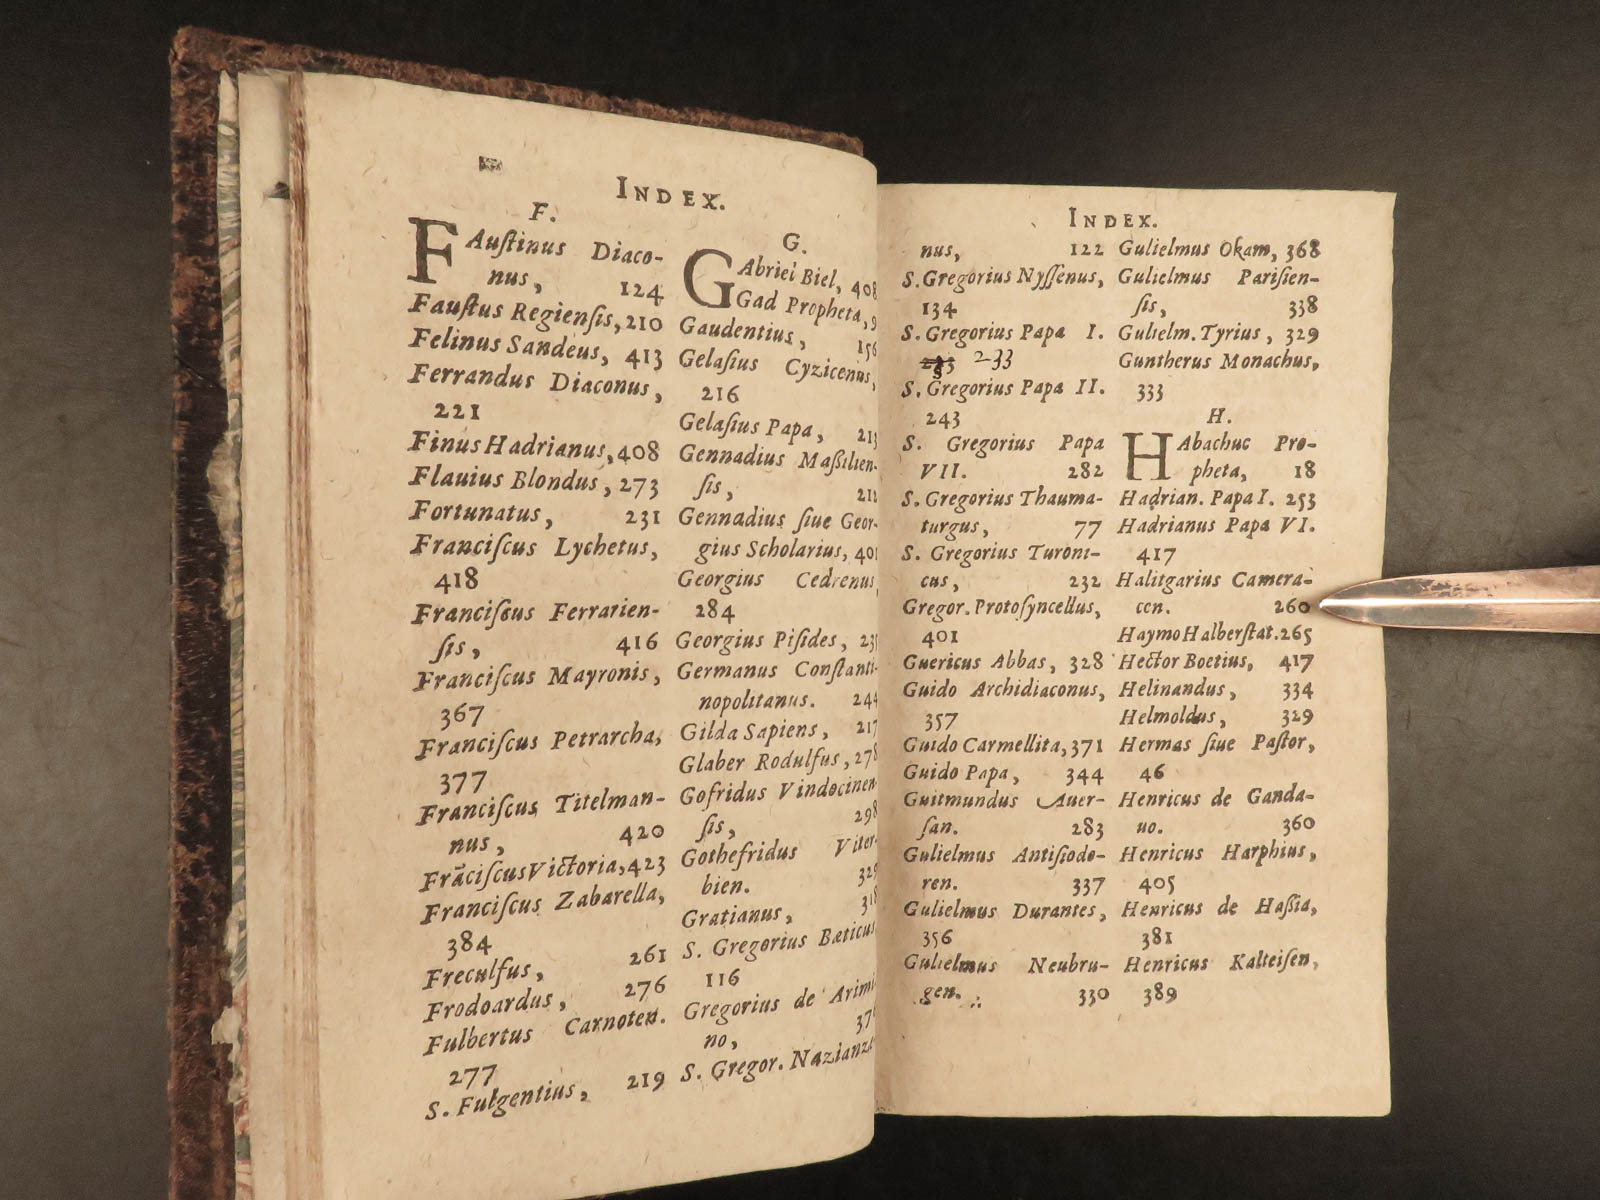 INDEX.
F.
FAuſtinus Diaco-
nus, 124
Fauſtus Regienſis, 210
Felinus Sandeus, 413
Ferrandus Diaconus,
221
Finus Hadrianus, 408
Flauius Blondus, 273
Fortunatus, 231
Franciſcus Lychetus,
418
Franciſcus Ferrarien-
ſis, 416
Franciſcus Mayronis,
367
Franciſcus Petrarcha,
377
Franciſcus Titelman-
nus, 420
Frāciſcus Victoria, 423
Franciſcus Zabarella,
384
Freculfus, 261
Frodoardus, 276
Fulbertus Carnoten.
277
S. Fulgentius, 219
G.
GAbriel Biel, 408
Gad Propheta, 9
Gaudentius, 156
Gelaſius Cyzicenus,
216
Gelaſius Papa, 213
Gennadius Maßilien-
ſis, 212
Gennadius ſiue Geor-
gius Scholarius, 401
Georgius Cedrenus
284
Georgius Piſides, 235
Germanus Conſtanti-
nopolitanus. 244
Gilda Sapiens, 217
Glaber Rodulfus, 278
Gofridus Vindocinen-
ſis, 298
Gothefridus Viter-
bien. 329
Gratianus, 318
S. Gregorius Bæticus
116
Gregorius de Arimi-
no, 37
S. Gregor. Nazianze-
INDEX.
nus, 122
S. Gregorius Nyſſenus,
134
S. Gregorius Papa I.
233
S. Gregorius Papa II.
243
S. Gregorius Papa
VII. 282
S. Gregorius Thauma-
turgus, 77
S. Gregorius Turoni-
cus, 232
Gregor. Protoſyncellus,
401
Guericus Abbas, 328
Guido Archidiaconus,
357
Guido Carmellita, 371
Guido Papa, 344
Guitmundus Auer-
ſan. 283
Gulielmus Antiſiodo-
ren. 337
Gulielmus Durantes,
356
Gulielmus Neubru-
gen. 330
Gulielmus Okam, 368
Gulielmus Pariſien-
ſis, 338
Gulielm. Tyrius, 329
Guntherus Monachus,
333
H.
HAbachuc Pro-
pheta, 18
Hadrian. Papa I. 253
Hadrianus Papa VI.
417
Halitgarius Camera-
cen. 260
Haymo Halberſtat. 265
Hector Boetius, 417
Helinandus, 334
Helmoldus, 329
Hermas ſiue Paſtor,
46
Henricus de Ganda-
uo. 360
Henricus Harphius,
405
Henricus de Haßia,
381
Henricus Kalteiſen,
389